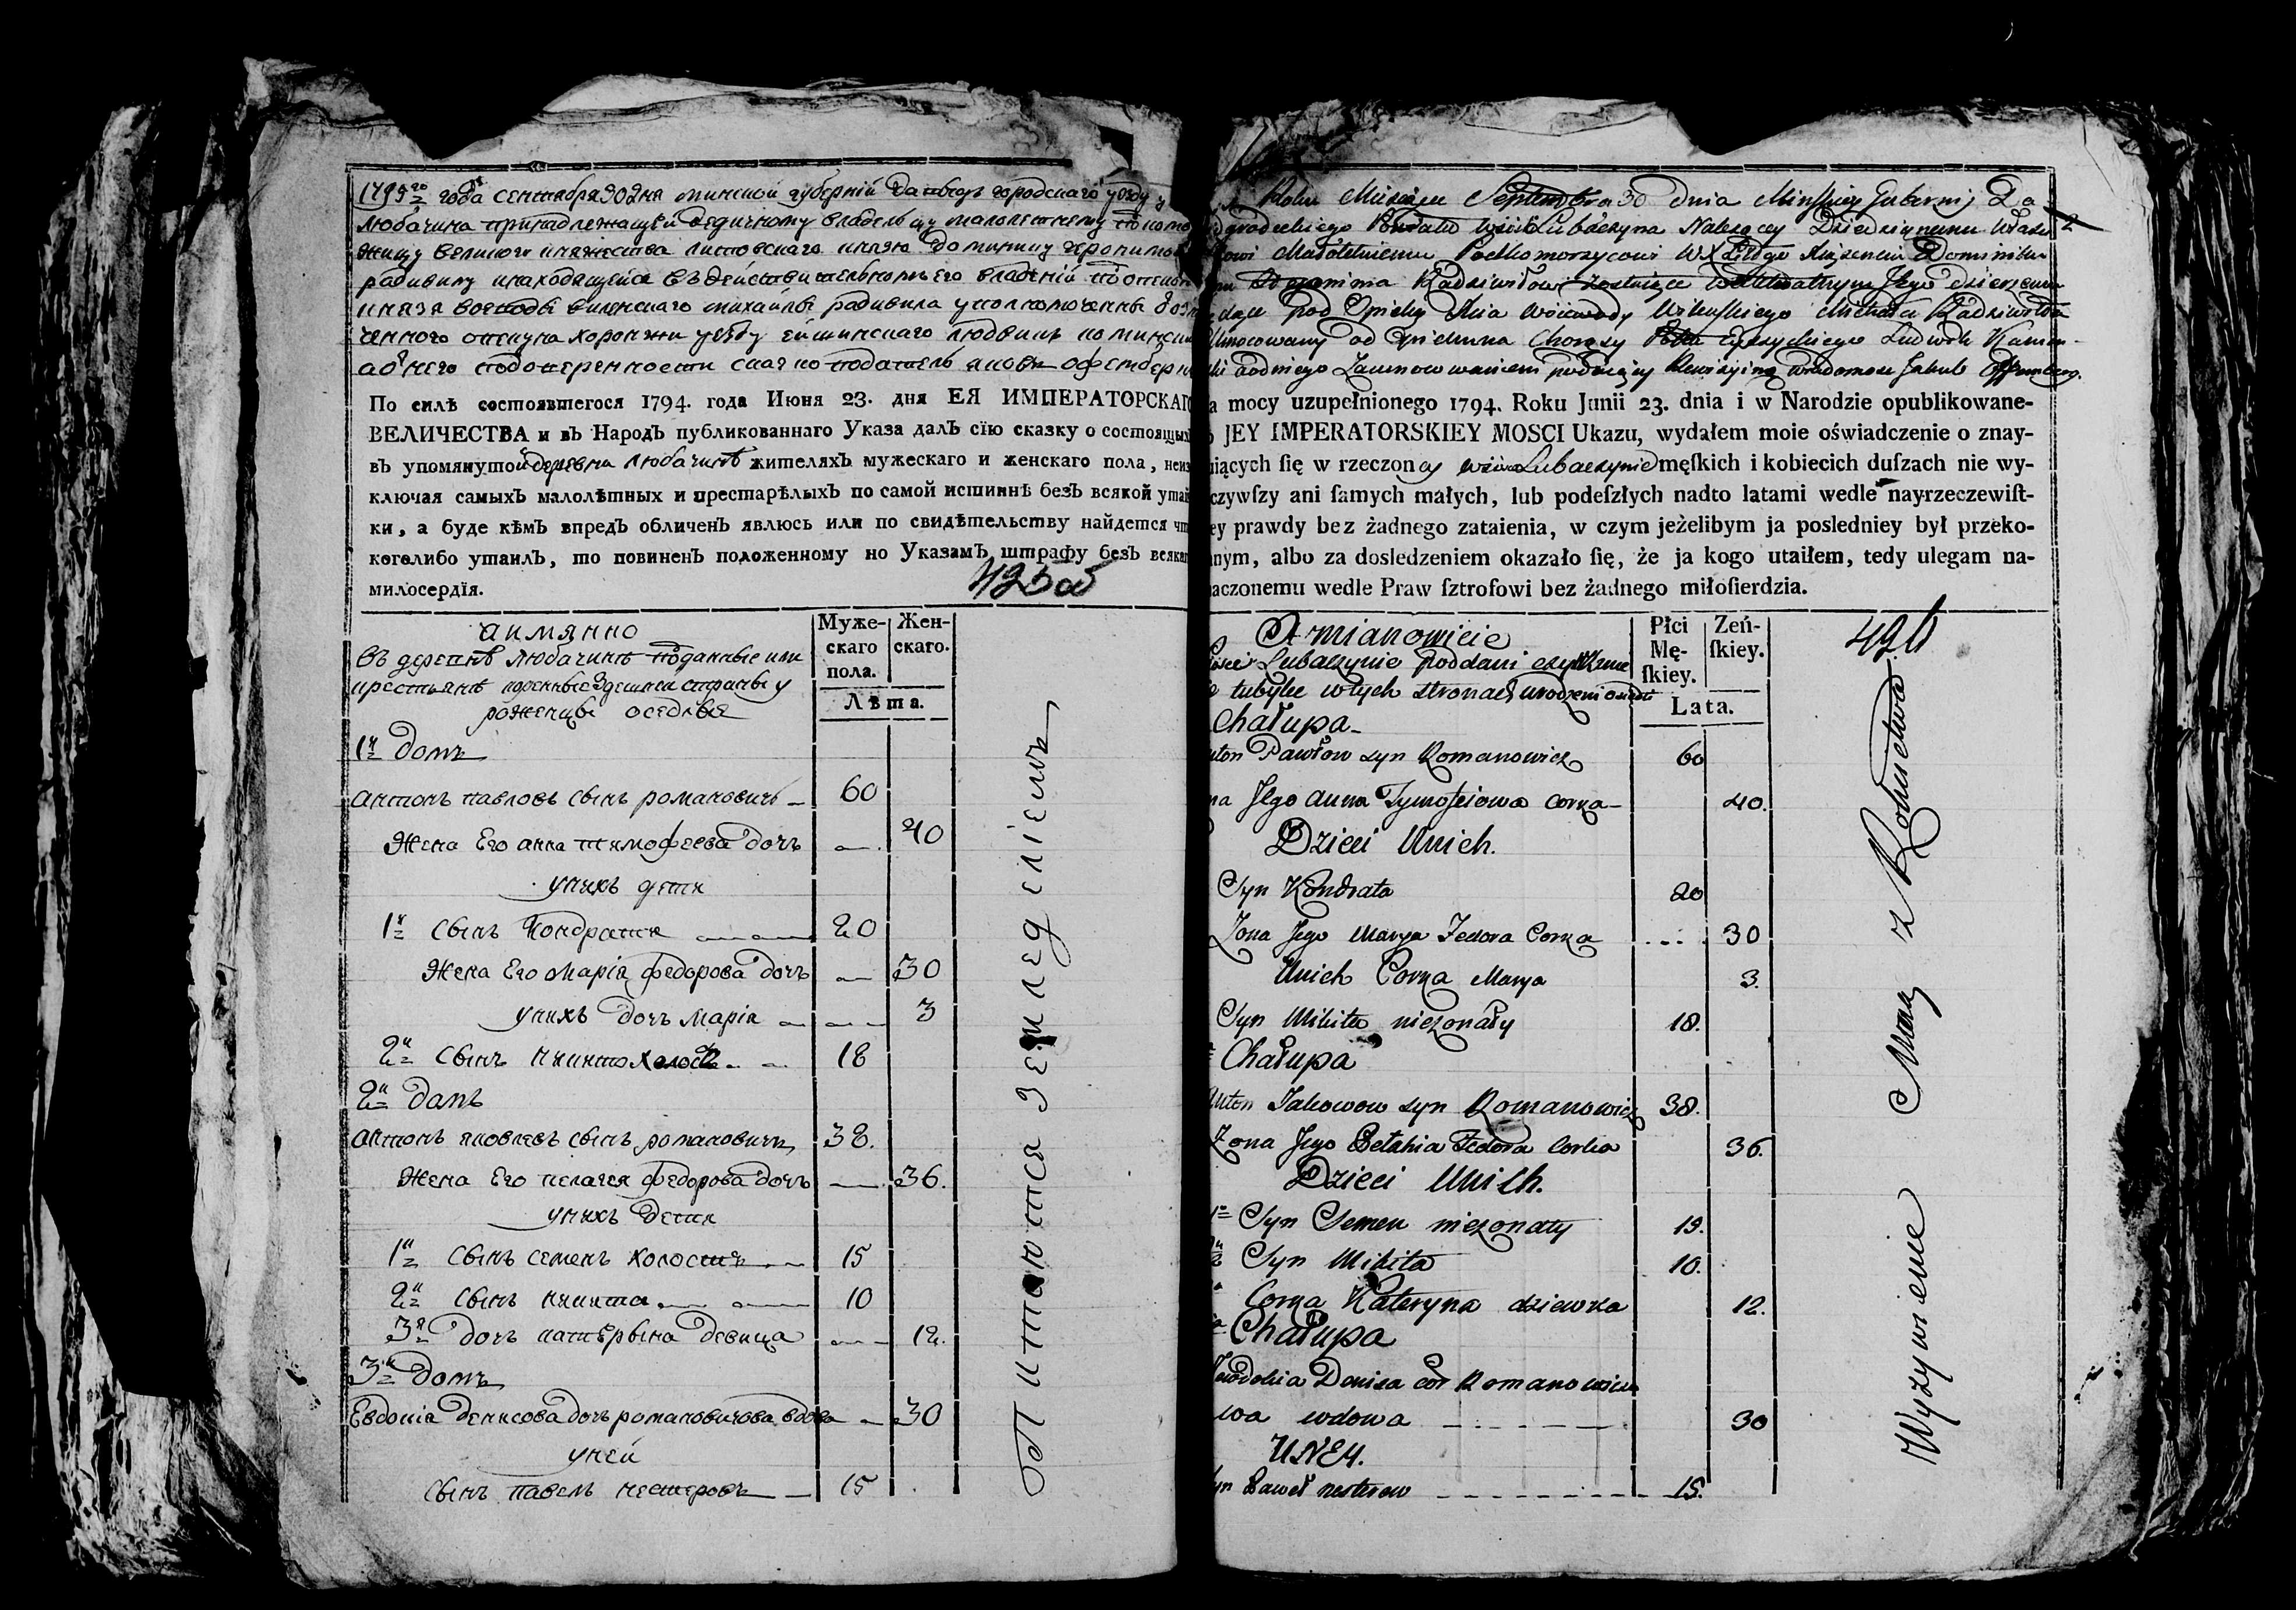 1795го года сентября 30 дня минской губернии давыдъ городскаго уезду
любачина принадлежащей дедичному владельцу малолетнему подкомо
жицу великого княжества литовскаго князю доминику геронимов
радивилу и находящейся въ действительномъ его владении под опекою
князя воеводы виленскаго михайлы радивила уполномоченны
ченного опекуна хоронжи уезду людвикъ камински
ад него податель яковъ офемберг
По силѣ состоявшегося 1794. года Июня 23. дня ЕЯ ИМПЕРАТОРСКАГО
ВЕЛИЧЕСТВА и въ Народѣ публикованнаго Указа далъ сїю сказку о состоящихъ
въ упомянутой деревни любачинѣ жителяхъ мужескаго и женскаго пола, неиз
ключая самыхъ малолѣтныхъ и престарѣлыхъ по самой истиннѣ безъ всякой утай
ки, а буде кѣмъ впредь обличенъ явлюсь или по свидѣтельству найдется что
коголибо утаилъ, то повиненъ положенному но Указамъ штрафу безъ всякаго
милосердїя.
425 об
аимянно
въ деревнѣ любачинѣ подданые или
крестьянѣ коренные здешней страны у
роженцы оседлые
Муже-
скаго
пола.
Жен-
скаго.
Лѣта.
1й домъ
антонъ павловъ сынъ романовичъ 60
жена Его анна тимофеева дочъ 40
унихъ дети
1й сынъ Кондратъ 20
жена Его Марія федорова дочъ 30
унихъ дочъ марія 3
2й сынъ никита холостъ 18
2й домъ
антонъ яковлевъ сынъ романовичъ 38.
жена Его пелагея федорова дочъ 36.
унихъ дети
1й сынъ семенъ холостъ 15
2й сынъ никита 10
3я дочъ катерына девица 12.
3й домъ
Евдокія денисова дочъ романовичова вдова 30
уней
сынъ павелъ нестеровъ 15
Питаются земледеліемъ
Roku Miesiąca Septembra 30 dnia Minskiey Guberni Da
gradeckiego Powiatu Wsi Lubaczyna Należącey Dziedzicznemu Własci
owi Małoletniemu Podkomorzycowi WXLitgo Xiążenciu Dominiku
Hieronima Radziwiłowi Jego dzierżeniu
dące pod Opieką Xcia Woiewody Wilenskiego Michała Radziwiłła
łnocowany od Opiekuna Chorąży Ludwik Kamin-
ski od niego podaiący Jakub Offemberg.
a mocy uzupełnionego 1794. Roku Junii 23. dnia i w Narodzie opublikowane-
o JEY IMPERATORSKIEY MOSCI Ukazu, wydałem moie oświadczenie o znay-
uiących ſię w rzeczoney wsi Lubaczynie męſkich i kobiecich duſzach nie wy-
czywſzy ani ſamych małych, lub podeſzłych nadto latami wedle nayrzeczewiſt-
ey prawdy bez żadnego zataienia, w czym jeżelibym ja posledniey był przeko-
nym, albo za dosledzeniem okazało ſię, że ja kogo utaiłem, tedy ulegam na-
aczonemu wedle Praw ſztrofowi bez żadnego miłoſierdzia.
426
A mianowicie
Lubaczynie Poddani czyli
tubylce w tych stronach urodzeni
Płci
Mę-
ſkiey.
Zeń-
ſkiey.
Lata.
Chałupa
nton Pawłow syn Romanowicz 60
na Jego Anna Tymofeiowa corka 40.
Dzieci Unich.
Syn Kondrata 20
Zona Jego Marya Fedora Corka 30
Unich Corka Marya 3.
Syn Mikita niezonaty 18.
Chałupa
Anton Jakowow syn Romanowicz 38.
Zona Jego Pelahia Fedora Corka 36.
Dzieci Unich.
1y Syn Semen niezonaty 15.
2y Syn Mikita 10.
Corka Kateryna dziewka 12.
Chałupa
Jewdokia Denisa cor Romanowicza
wa wdowa 30
UNEY.
yn Paweł nesterow 15.
Wyzywienie Maią z Rolnictwa